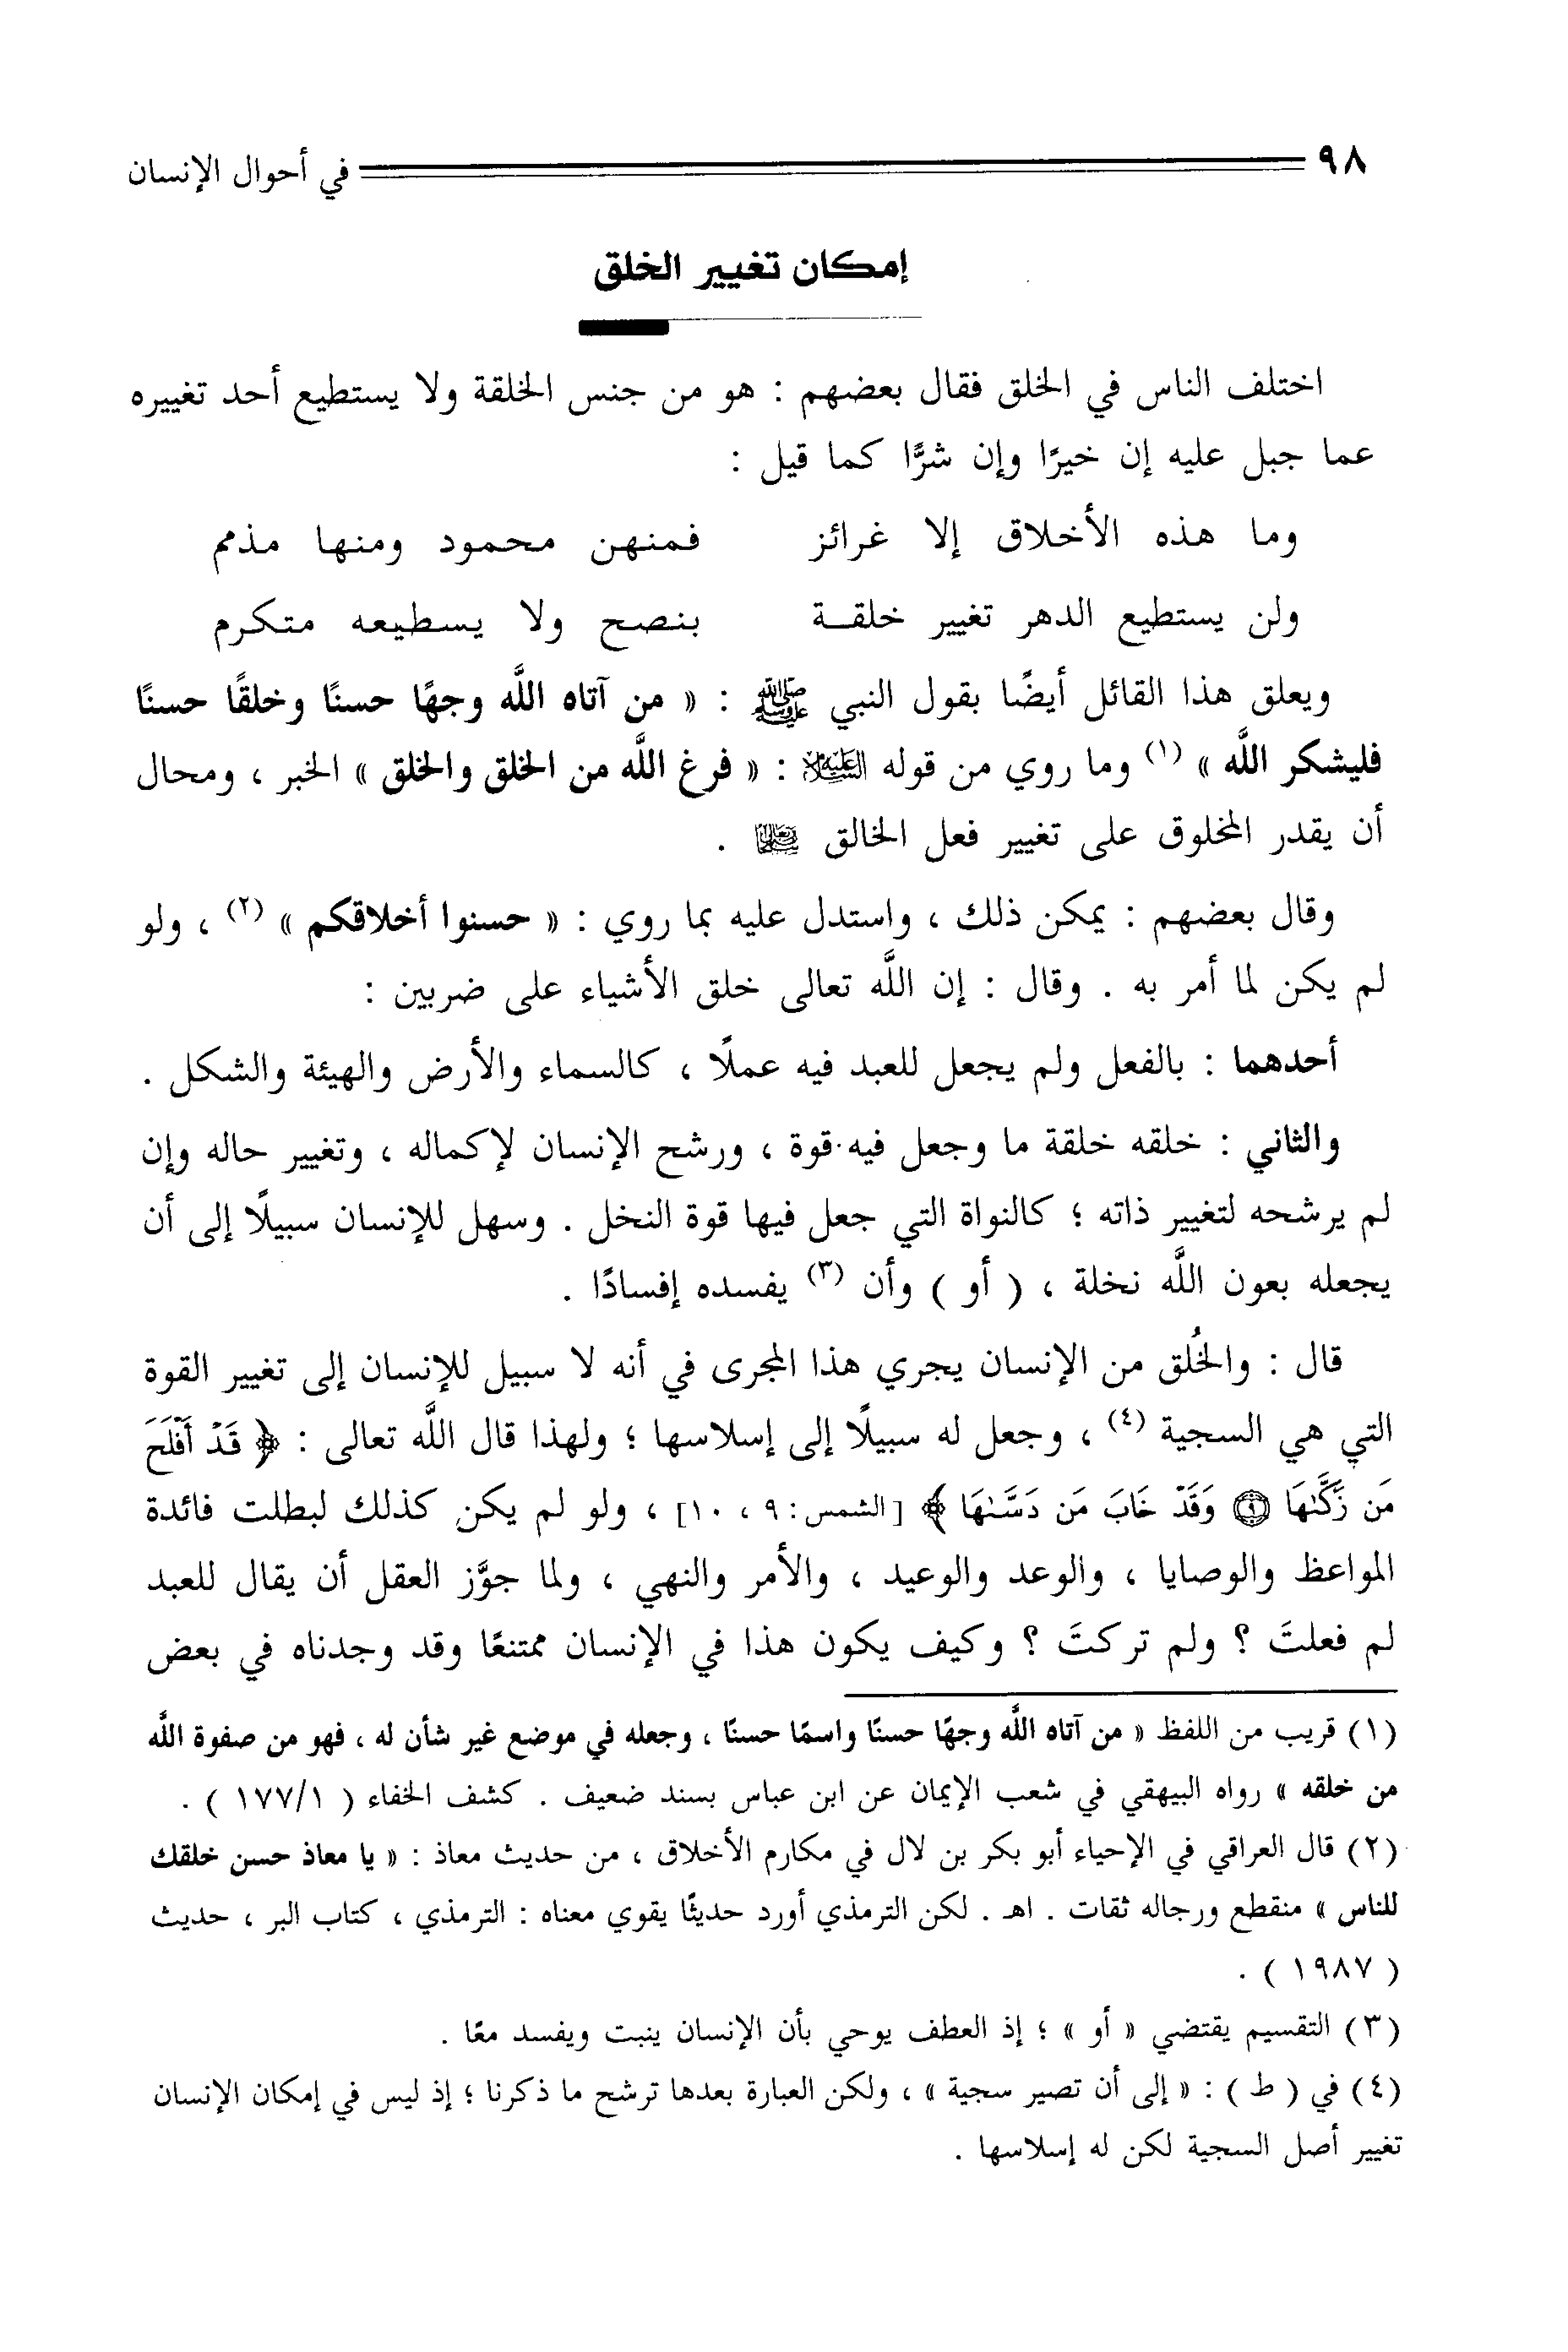 ٩٨ في أحوال الإنسان
إمكان تغيير الخلق
اختلف الناس في الخلق فقال بعضهم : هو من جنس الخلقة ولا يستطيع أحد تغييره
عما جبل عليه إن خيرًا وإن شرًّا كما قيل :
وما هذه الأخلاق إلا غرائز فمنهن محمود ومنها مذمم
ولن يستطيع الدهر تغيير خلقـة بنصح ولا يسطيعه متكرم
ويعلق هذا القائل أيضًا بقول النبي ﷺ : « من آتاه اللَّه وجهًا حسنًا وخلقًا حسنًا
فليشكر اللَّه » (١) وما روي من قوله الطَّيِّلا : « فرغ اللَّه من الخلق والخلق » الخبر ، ومحال
أن يقدر المخلوق على تغيير فعل الخالق .
وقال بعضهم : يمكن ذلك ، واستدل عليه بما روي : « حسنوا أخلاقكم » (٢) ، ولو
لم يكن لما أمر به . وقال : إن اللَّه تعالى خلق الأشياء على ضربين :
أحدهما : بالفعل ولم يجعل للعبد فيه عملًا ، كالسماء والأرض والهيئة والشكل .
والثاني : خلقه خلقة ما وجعل فيه قوة ، ورشح الإنسان لإكماله ، وتغيير حاله وإن
لم يرشحه لتغيير ذاته ؛ كالنواة التي جعل فيها قوة النخل . وسهل للإنسان سبيلًا إلى أن
يجعله بعون اللَّه نخلة ، ( أو ) وأن (٣) يفسده إفسادًا .
قال : والخُلق من الإنسان يجري هذا المجرى في أنه لا سبيل للإنسان إلى تغيير القوة
التي هي السجية (٤) ، وجعل له سبيلًا إلى إسلاسها ؛ ولهذا قال اللَّه تعالى : ﴿ قَدْ أَفْلَحَ
مَن زَكَّىٰهَا ۝٩ وَقَدْ خَابَ مَن دَسَّىٰهَا ﴾ [ الشمس : ٩ ، ١٠] ، ولو لم يكن كذلك لبطلت فائدة
المواعظ والوصايا ، والوعد والوعيد ، والأمر والنهي ، ولما جوَّز العقل أن يقال للعبد
لم فعلتَ ؟ ولم تركتَ ؟ وكيف يكون هذا في الإنسان ممتنعًا وقد وجدناه في بعض
(١) قريب من اللفظ « من آتاه اللَّه وجهًا حسنًا واسمًا حسنًا ، وجعله في موضع غير شأن له ، فهو من صفوة اللَّه
من خلقه » رواه البيهقي في شعب الإيمان عن ابن عباس بسند ضعيف . كشف الخفاء ( ١٧٧/١ ) .
(٢) قال العراقي في الإحياء أبو بكر بن لال في مكارم الأخلاق ، من حديث معاذ : « يا معاذ حسن خلقك
للناس » منقطع ورجاله ثقات . اهـ . لكن الترمذي أورد حديثًا يقوي معناه : الترمذي ، كتاب البر ، حديث
( ١٩٨٧ ) .
(٣) التقسيم يقتضي « أو » ؛ إذ العطف يوحي بأن الإنسان ينبت ويفسد معًا .
(٤) في ( ط ) : « إلى أن تصير سجية » ، ولكن العبارة بعدها ترشح ما ذكرنا ؛ إذ ليس في إمكان الإنسان
تغيير أصل السجية لكن له إسلاسها .